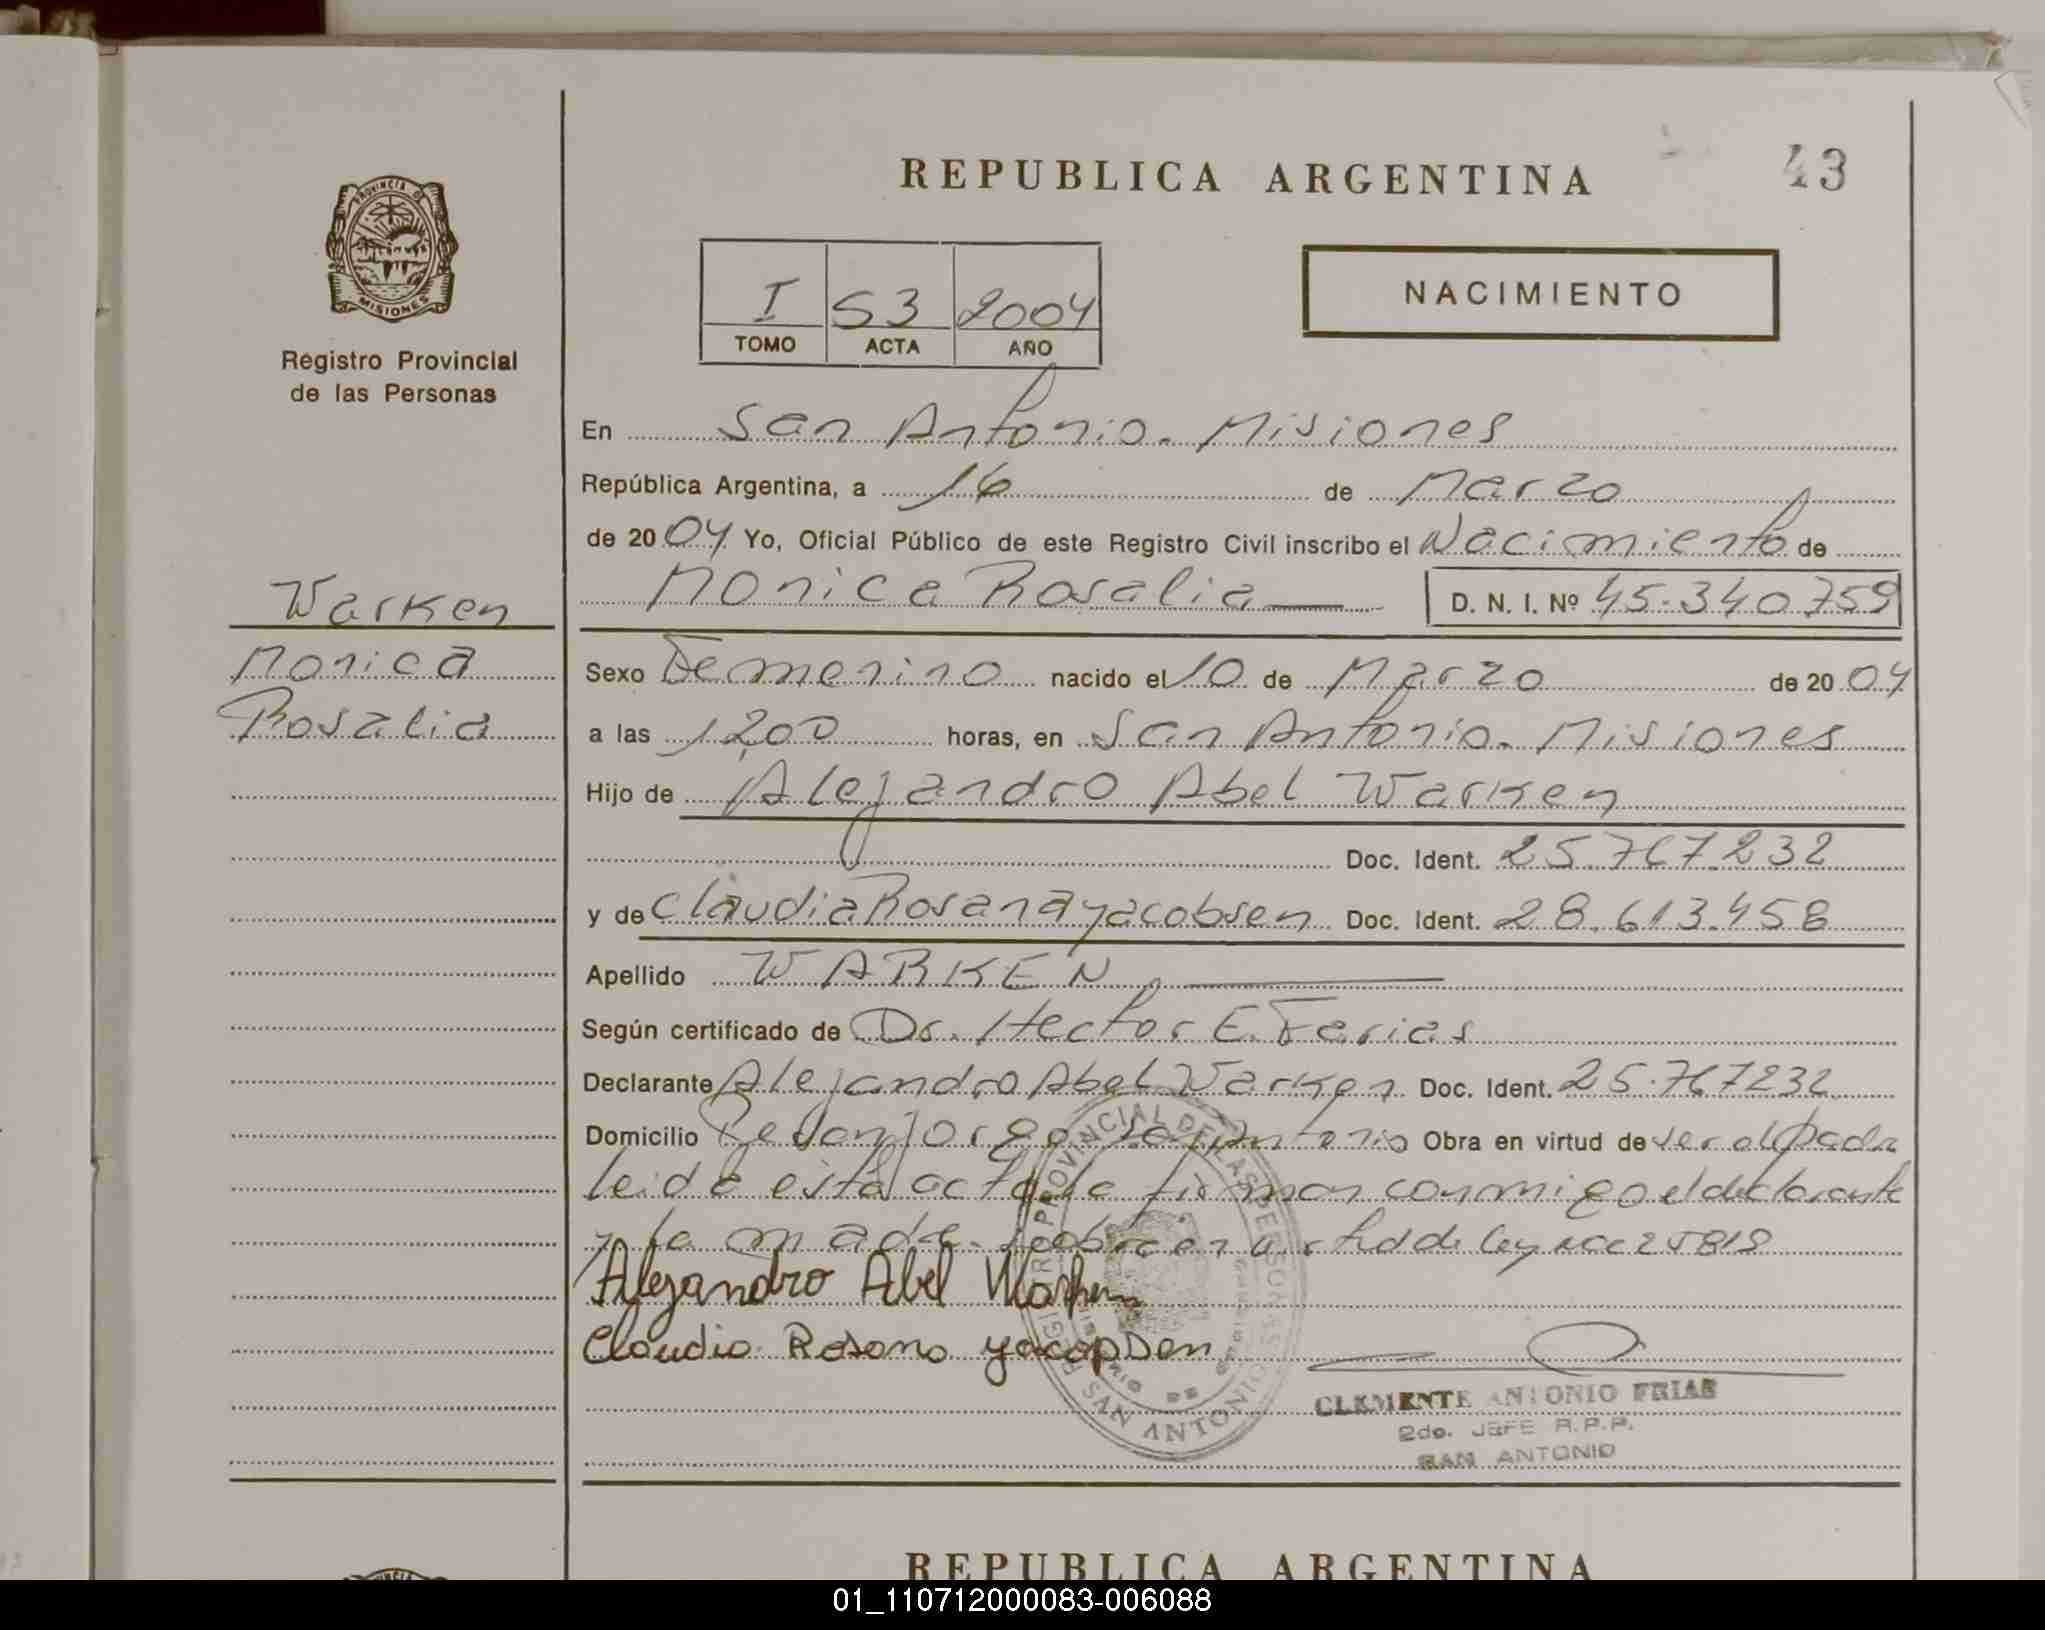 REPUBLICA ARGENTINA
43
PROVINCIA DE
MISIONES
Registro Provincial
de las Personas
I 53 2004
TOMO ACTA AÑO
NACIMIENTO
En San Antonio. Misiones
República Argentina, a 16 de Marzo
de 2004 Yo, Oficial Público de este Registro Civil inscribo el Nacimiento de
Monica Rosalia D. N. I. Nº 45.340759
Warken
Monica
Rosalia
Sexo Femenino nacido el 10 de Marzo de 2004
a las 12,00 horas, en San Antonio. Misiones
Hijo de Alejandro Abel Warken
Doc. Ident. 25.767.232
y de Claudia Rosana yacobsen Doc. Ident. 28.613.458
Apellido WARKEN
Según certificado de Dr. Hector E. Farias
Declarante Alejandro Abel Warken Doc. Ident. 25.767232
Domicilio San Antonio Obra en virtud de ser el padre
leida esta acta la firman conmigo el declarante
y la madre. de ley 25819
Alejandro Abel Warken
Claudia Rosana yacopsen
REGISTRO PROVINCIAL DE LAS PERSONAS
SAN ANTONIO
CLEMENTE ANTONIO FRIAS
2do. JEFE R.P.P.
SAN ANTONIO
REPUBLICA ARGENTINA
01_110712000083-006088